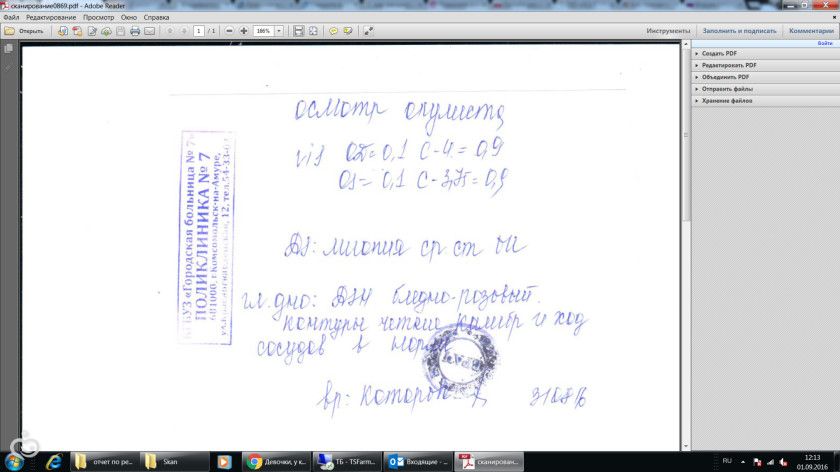 сканирование0869.pdf - Adobe Reader
Файл Редактирование Просмотр Окно Справка
Открыть 1 / 1 186% Инструменты Заполнить и подписать Комментарии
Войти
Создать PDF
Редактировать PDF
Объединить PDF
Отправить файлы
Хранение файлов
осмотр окулиста
vis OD= 0,1 С-4. = 0,9
OS= 0,1 С-3,75= 0,9
КГБУЗ «Городская больница № 7»
ПОЛИКЛИНИКА № 7
681000, г.Комсомольск-на-Амуре,
12, тел.54-33-
DS: миопия ср ст
гл. дно: ДЗН бледно-розовый.
контуры четкие калибр и ход
сосудов в норме
вр:
отчет по ре...
Skan
Девочки, у к...
ТБ - TSFarm...
Входящие - ...
сканирован...
RU
12:13
01.09.2016